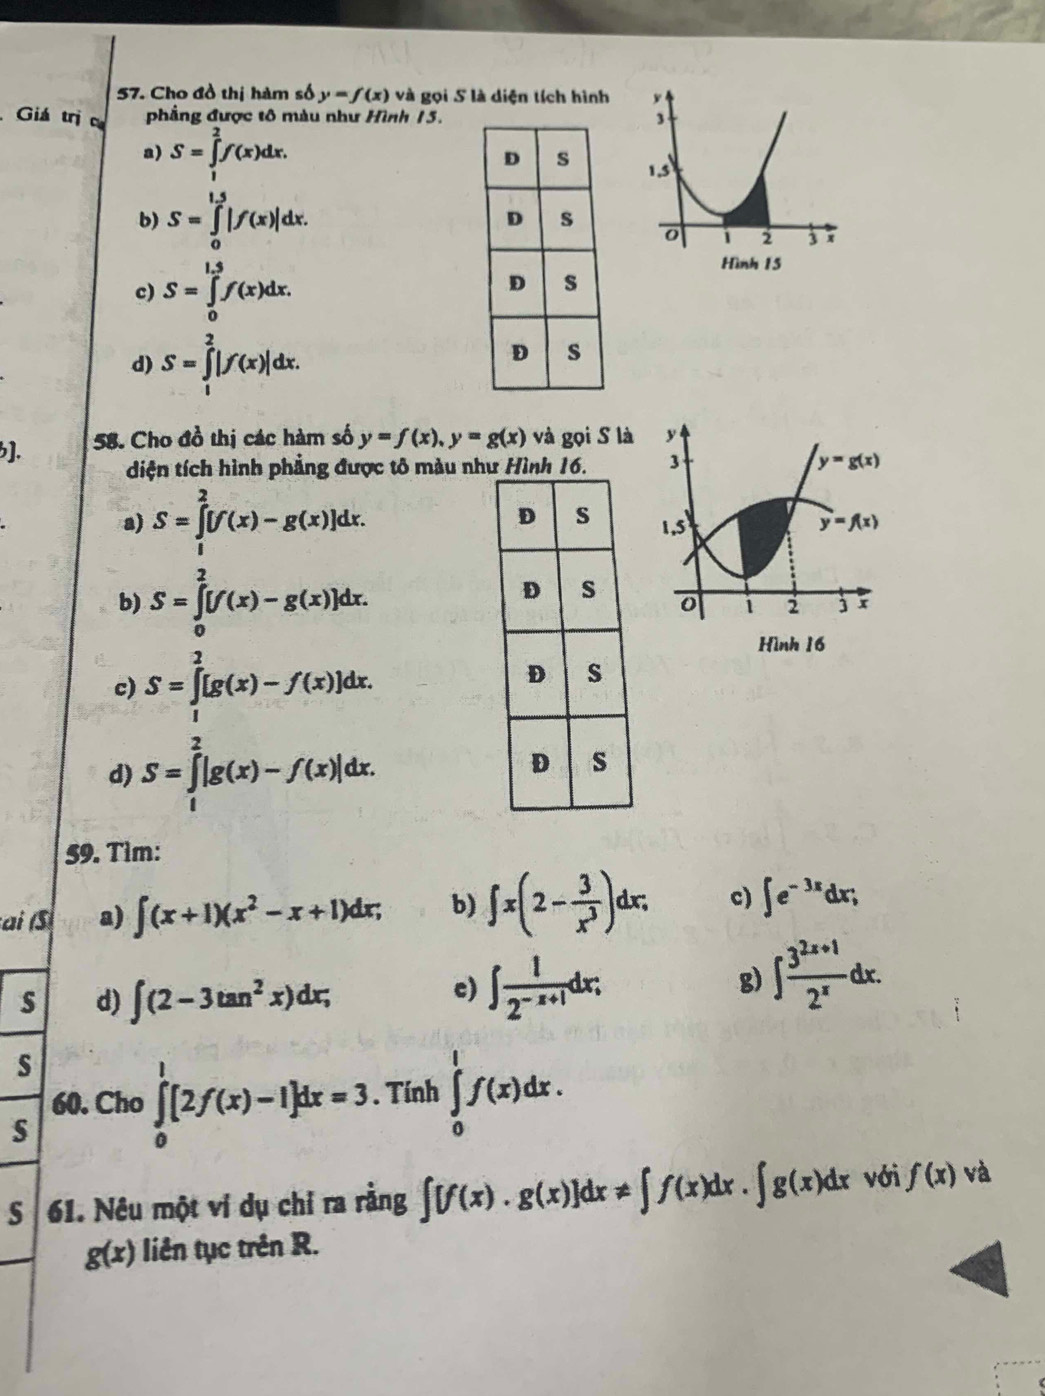 . Giá trị
57. Cho đồ thị hàm số y = f(x) và gọi S là diện tích hình
phẳng được tô màu như Hình 15.
a) S = ∫₁² f(x)dx.
b) S = ∫₀^{1,5} |f(x)|dx.
c) S = ∫₀^{1,5} f(x)dx.
d) S = ∫₁² |f(x)|dx.
Đ S
Đ S
Đ S
Đ S
y
3
1,5
O 1 2 3 x
Hình 15
b].
58. Cho đồ thị các hàm số y = f(x), y = g(x) và gọi S là
diện tích hình phẳng được tô màu như Hình 16.
a) S = ∫₁² [f(x) − g(x)]dx.
b) S = ∫₀² [f(x) − g(x)]dx.
c) S = ∫₁² [g(x) − f(x)]dx.
d) S = ∫₁² |g(x) − f(x)|dx.
Đ S
Đ S
Đ S
Đ S
y
3
y = g(x)
1,5
y = f(x)
O 1 2 3 x
Hình 16
59. Tìm:
a) ∫(x + 1)(x² − x + 1)dx; b) ∫x(2 − 3/x³)dx; c) ∫e^{−3x}dx;
d) ∫(2 − 3tan² x)dx; e) ∫1/2^{−x+1} dx; g) ∫3^{2x+1}/2^x dx.
ai (S
S
S
S
S
60. Cho ∫₀¹ [2f(x) − 1]dx = 3. Tính ∫₀¹ f(x)dx.
61. Nêu một ví dụ chỉ ra rằng ∫[f(x) . g(x)]dx ≠ ∫f(x)dx . ∫g(x)dx với f(x) và
g(x) liên tục trên ℝ.